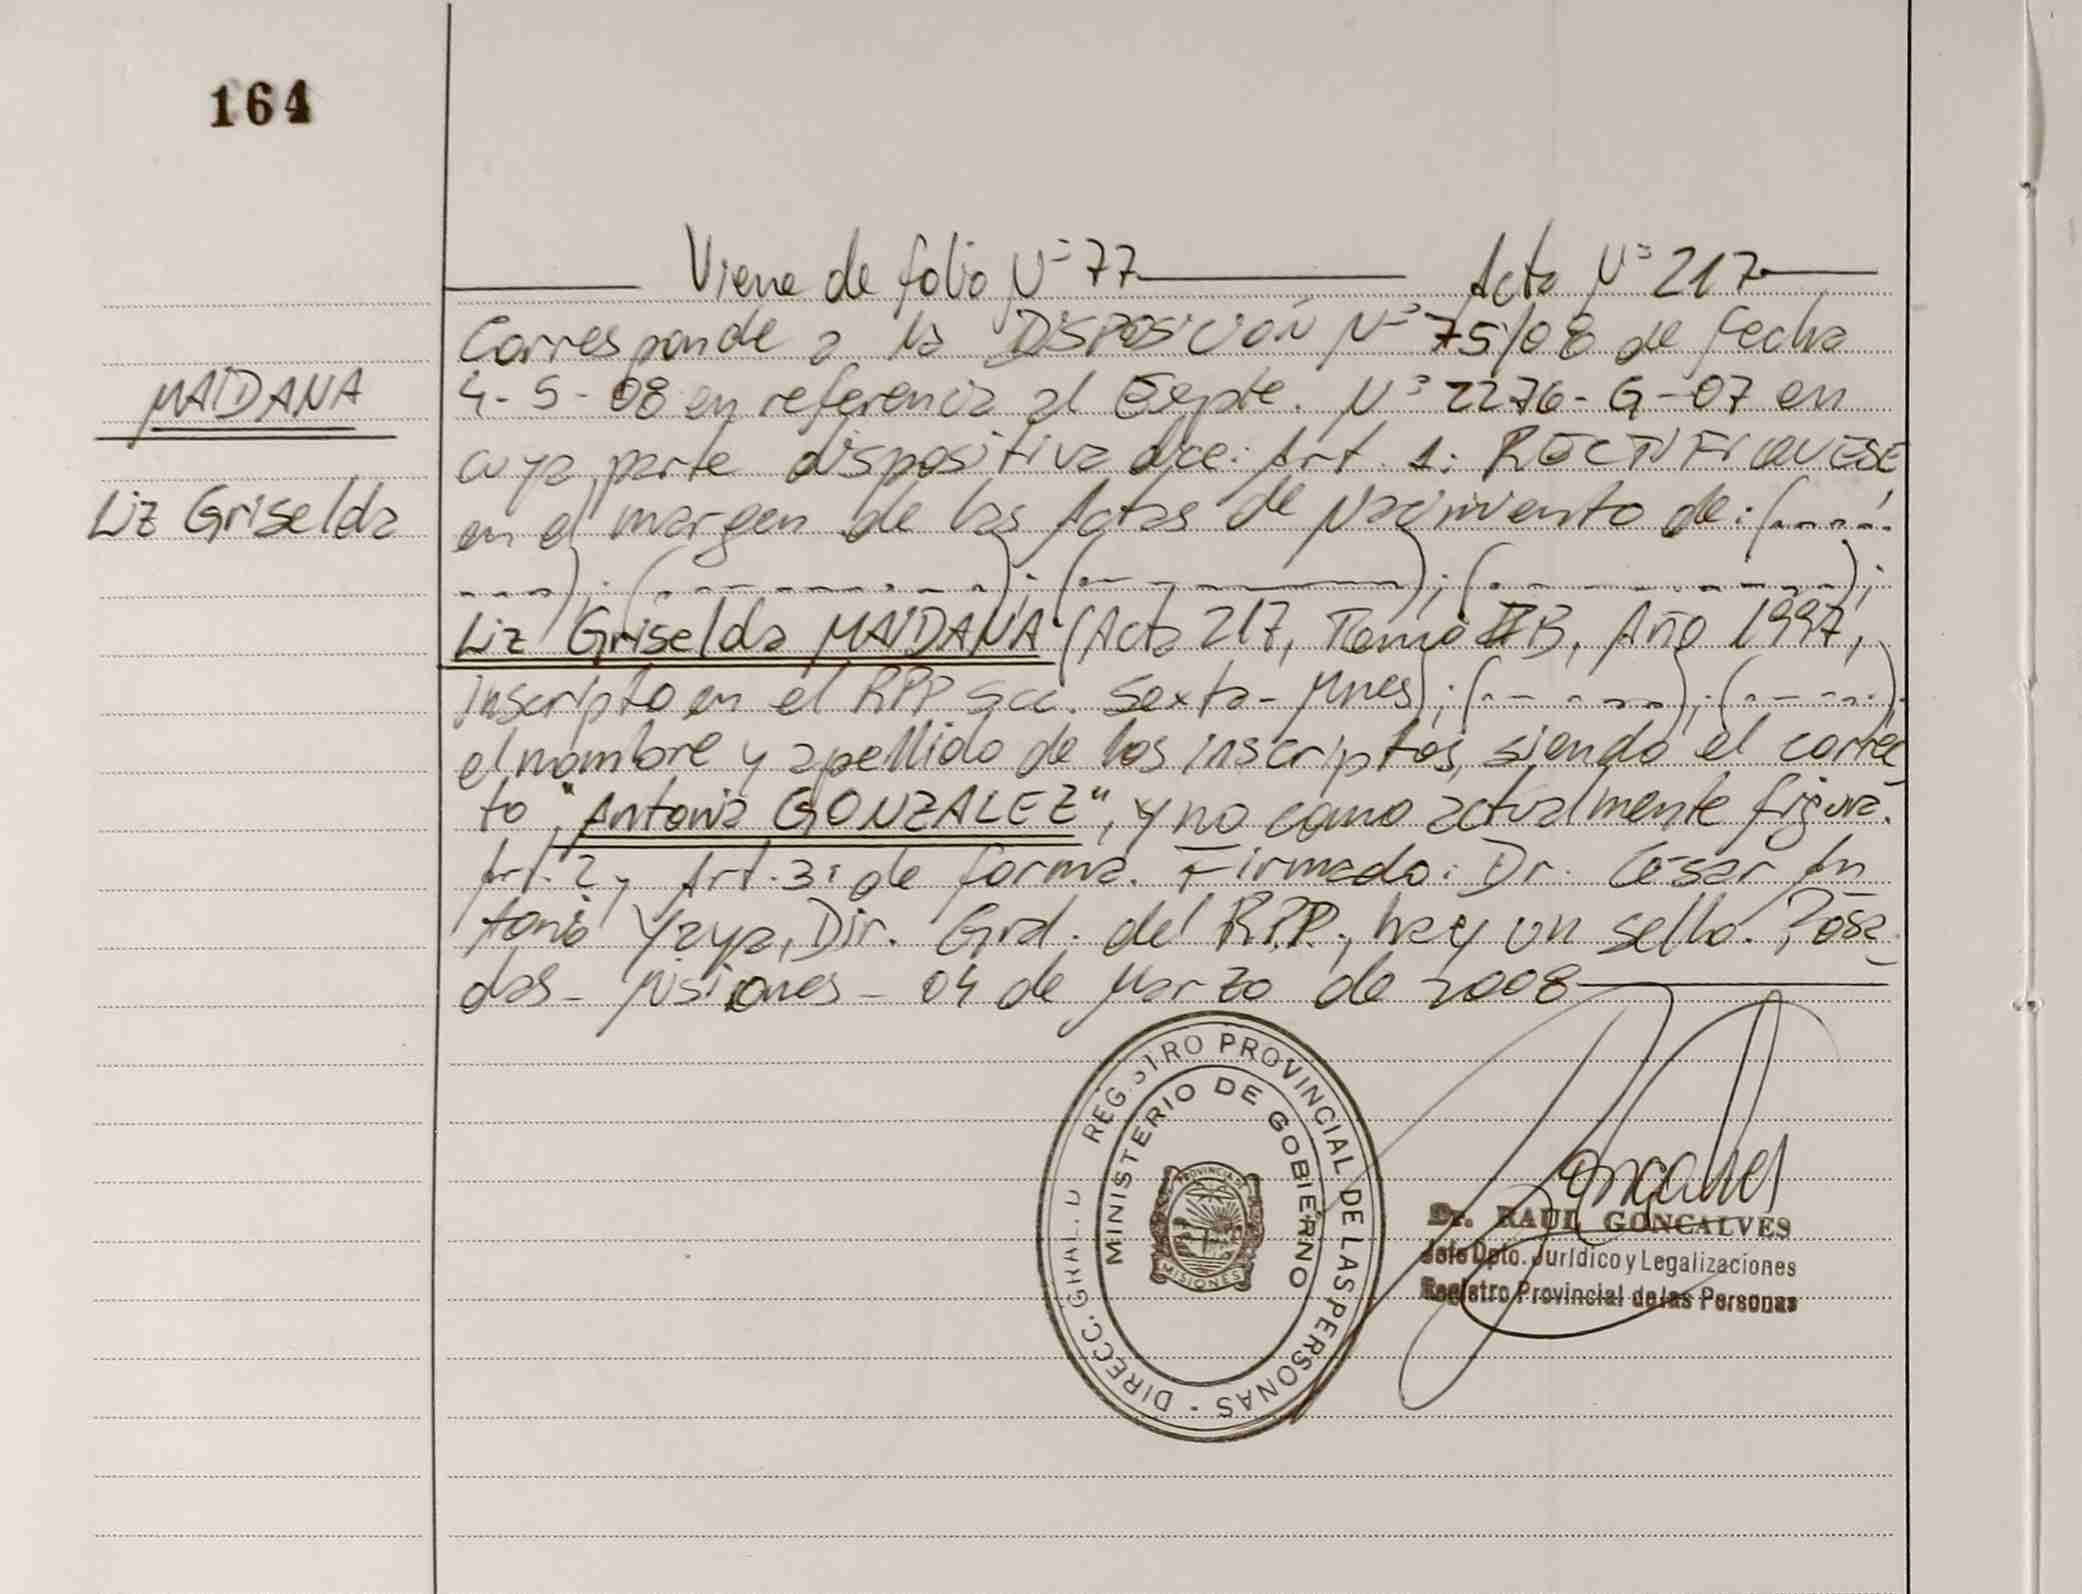 164
Viene de folio Nº 77 Acta Nº 217
Corresponde a la DISPOSICIÓN Nº 75/08 de fecha
MAIDANA
4-5-08 en referencia al Expte. Nº 2276-G-07 en
cuya parte dispositiva dice: Art. 1: RECTIFIQUESE
Liz Griselda
en el margen de las Actas de Nacimiento de: (.......
....); (..............); (..............); (..............);
Liz Griselda MAIDANA (Acta 217, Tomo B, Año 1997,
inscripto en el RPP Secc. Sexta - Mnes); (........); (........);
el nombre y apellido de los inscriptos, siendo el correc
to "Antonia GONZALEZ", y no como actualmente figura.
Art. 2 y Art. 3: de forma. Firmado: Dr. César An
tonio Yaya, Dir. Gral. del R.P.P., hay un sello. Posa
das - Misiones - 04 de Marzo de 2008
DIRECC. GRAL. D REGISTRO PROVINCIAL DE LAS PERSONAS -
MINISTERIO DE GOBIERNO
PROVINCIA DE
MISIONES
Dr. RAUL GONCALVES
Jefe Dpto. Jurídico y Legalizaciones
Registro Provincial de las Personas